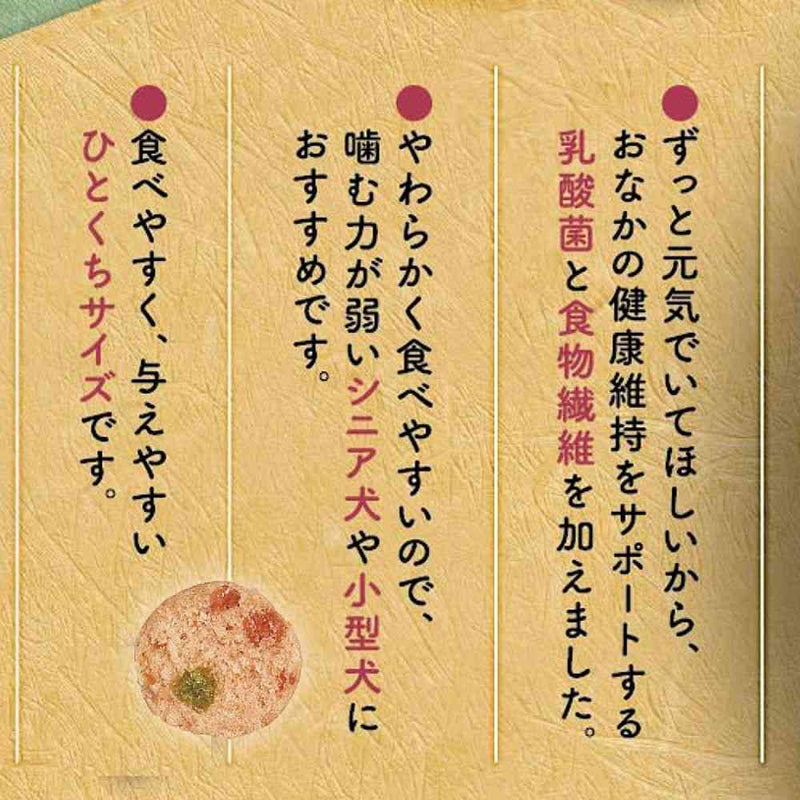 ●ずっと元気でいてほしいから、
おなかの健康維持をサポートする
乳酸菌と食物繊維を加えました。
●やわらかく食べやすいので、
噛む力が弱いシニア犬や小型犬に
おすすめです。
●食べやすく、与えやすい
ひとくちサイズです。